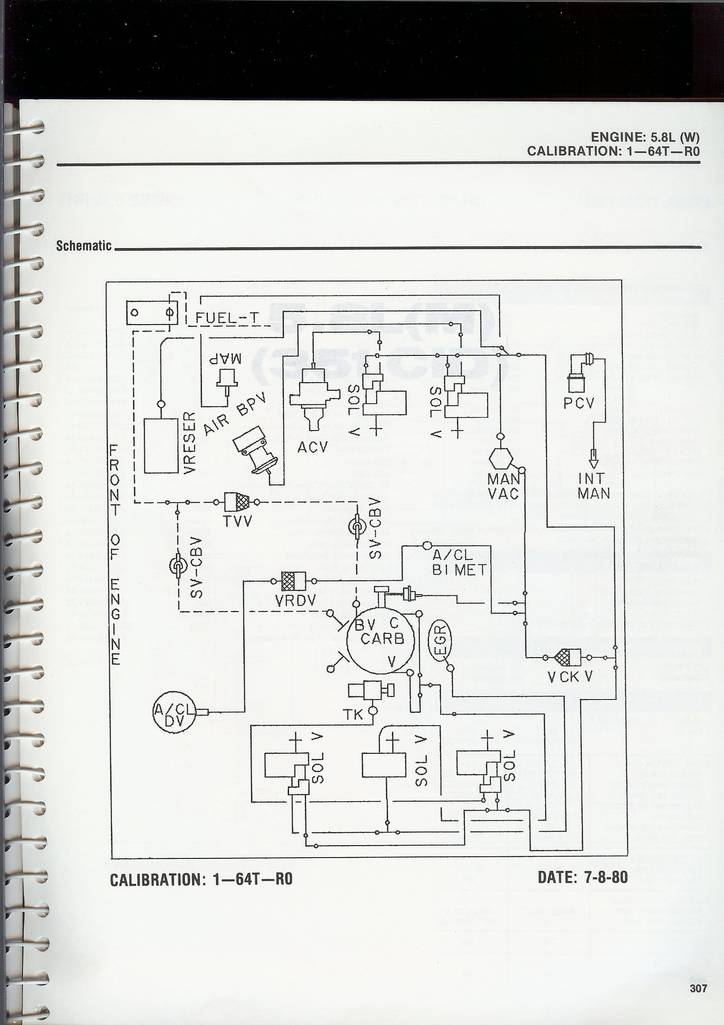 ENGINE: 5.8L (W)
CALIBRATION: 1—64T—R0
Schematic
FUEL-T
MAP
AIR BPV
VRESER
ACV
SOL V
SOL V
PCV
MAN
VAC
INT
MAN
FRONT OF ENGINE
TVV
SV-CBV
SV-CBV
A/CL
BIMET
VRDV
BV C
CARB
V
EGR
VCKV
A/CL
DV
TK
SOL V
SOL V
SOL V
CALIBRATION: 1—64T—R0
DATE: 7-8-80
307